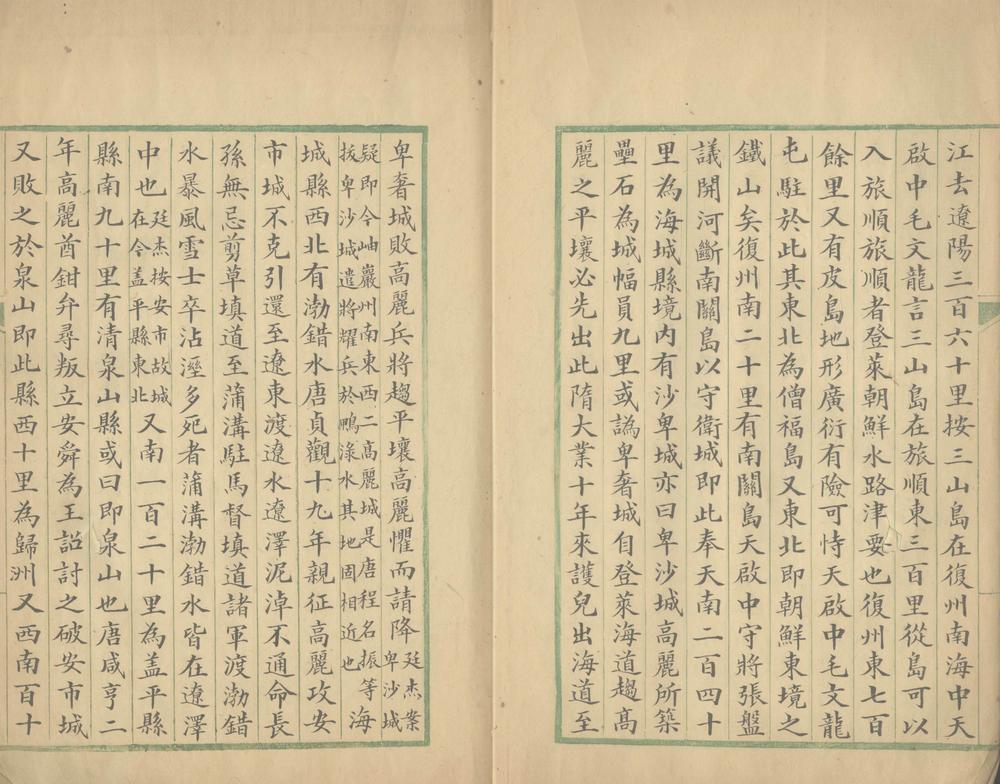 江去遼陽三百六十里按三山島在復州南海中天
啟中毛文龍言三山島在旅順東三百里從島可以
入旅順旅順者登萊朝鮮水路津要也復州東七百
餘里又有皮島地形廣衍有險可恃天啟中毛文龍
屯駐於此其東北為僧福島又東北即朝鮮東境之
鐵山矣復州南二十里有南關島天啟中守將張盤
議開河斷南關島以守衛城即此奉天南二百四十
里為海城縣境内有沙卑城亦曰卑沙城高麗所築
壘石為城幅員九里或譌卑奢城自登萊海道趨高
麗之平壤必先出此隋大業十年來護兒出海道至
卑奢城敗高麗兵將趨平壤高麗懼而請降廷杰案卑沙城
疑即今岫巖州南東西二高麗城是唐程名振等拔卑沙城遣將耀兵於鴨淥水其地固相近也海
城縣西北有渤錯水唐貞觀十九年親征高麗攻安
市城不克引還至遼東渡遼水遼澤泥淖不通命長
孫無忌剪草填道至蒲溝駐馬督填道諸軍渡渤錯
水暴風雪士卒沾溼多死者蒲溝渤錯水皆在遼澤
中也廷杰按安市故城在今盖平縣東北又南一百二十里為盖平縣
縣南九十里有清泉山縣或曰即泉山也唐咸亨二
年高麗酋鉗弁尋叛立安舜為王詔討之破安市城
又敗之於泉山即此縣西十里為歸州又西南百十